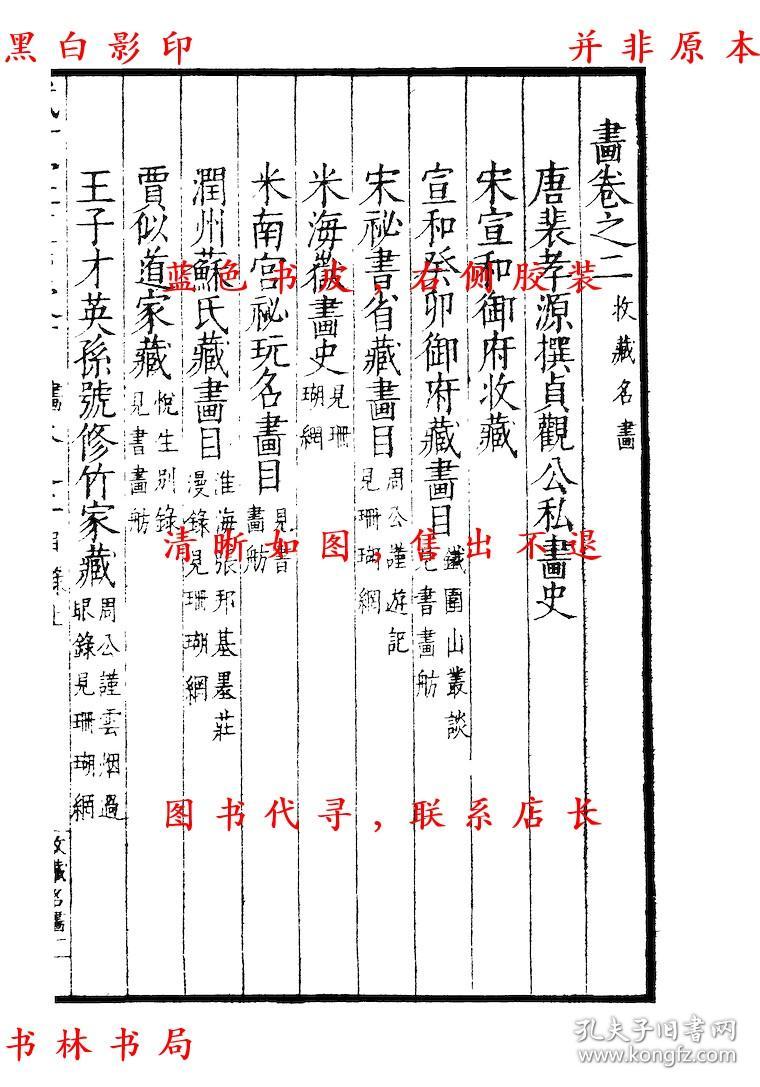 黑白影印
并非原本
畫卷之二 收藏名畫
唐裴孝源撰貞觀公私畫史
宋宣和御府收藏
宣和癸卯御府藏畫目 鐵圍山叢談
見書畫舫
宋祕書省藏畫目 周公謹遊記
見珊瑚網
米海嶽畫史 見珊
瑚網
米南宮祕玩名畫目 見書
畫舫
潤州蘇氏藏畫目 淮海張邦基墨莊
漫錄見珊瑚網
賈似道家藏 悅生別錄
見書畫舫
王子才英孫號修竹家藏 周公謹雲烟過
眼錄見珊瑚網
收藏名畫二
蓝色书皮,右侧胶装
清晰如图,售出不退
图书代寻,联系店长
书林书局
孔夫子旧书网
www.kongfz.com